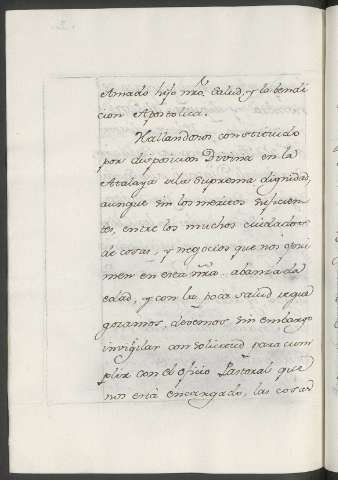 2.
Amado hijo nr̃o. Salud, y la bendi
cion Apostolica.
Hallandonos constituido
por disposicion Divina en la
Atalaya de la Suprema dignidad,
aunque sin los meritos suficien
tes, entre los muchos cuidados
de cosas, y negocios que nos opri
men en esta nr̃a. abanzada
edad, y con la poca salud que
gozamos, devemos sin embargo
invigilar con solicitud para cum
plir con el oficio Pastoral que
nos está encargado, las cosas